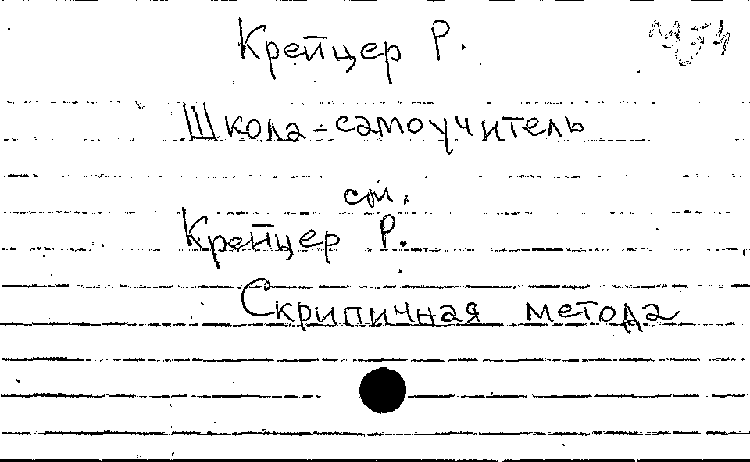 Крейцер Р.
Школа-самоучитель
см.
Крейцер Р.
Скрипичная метода